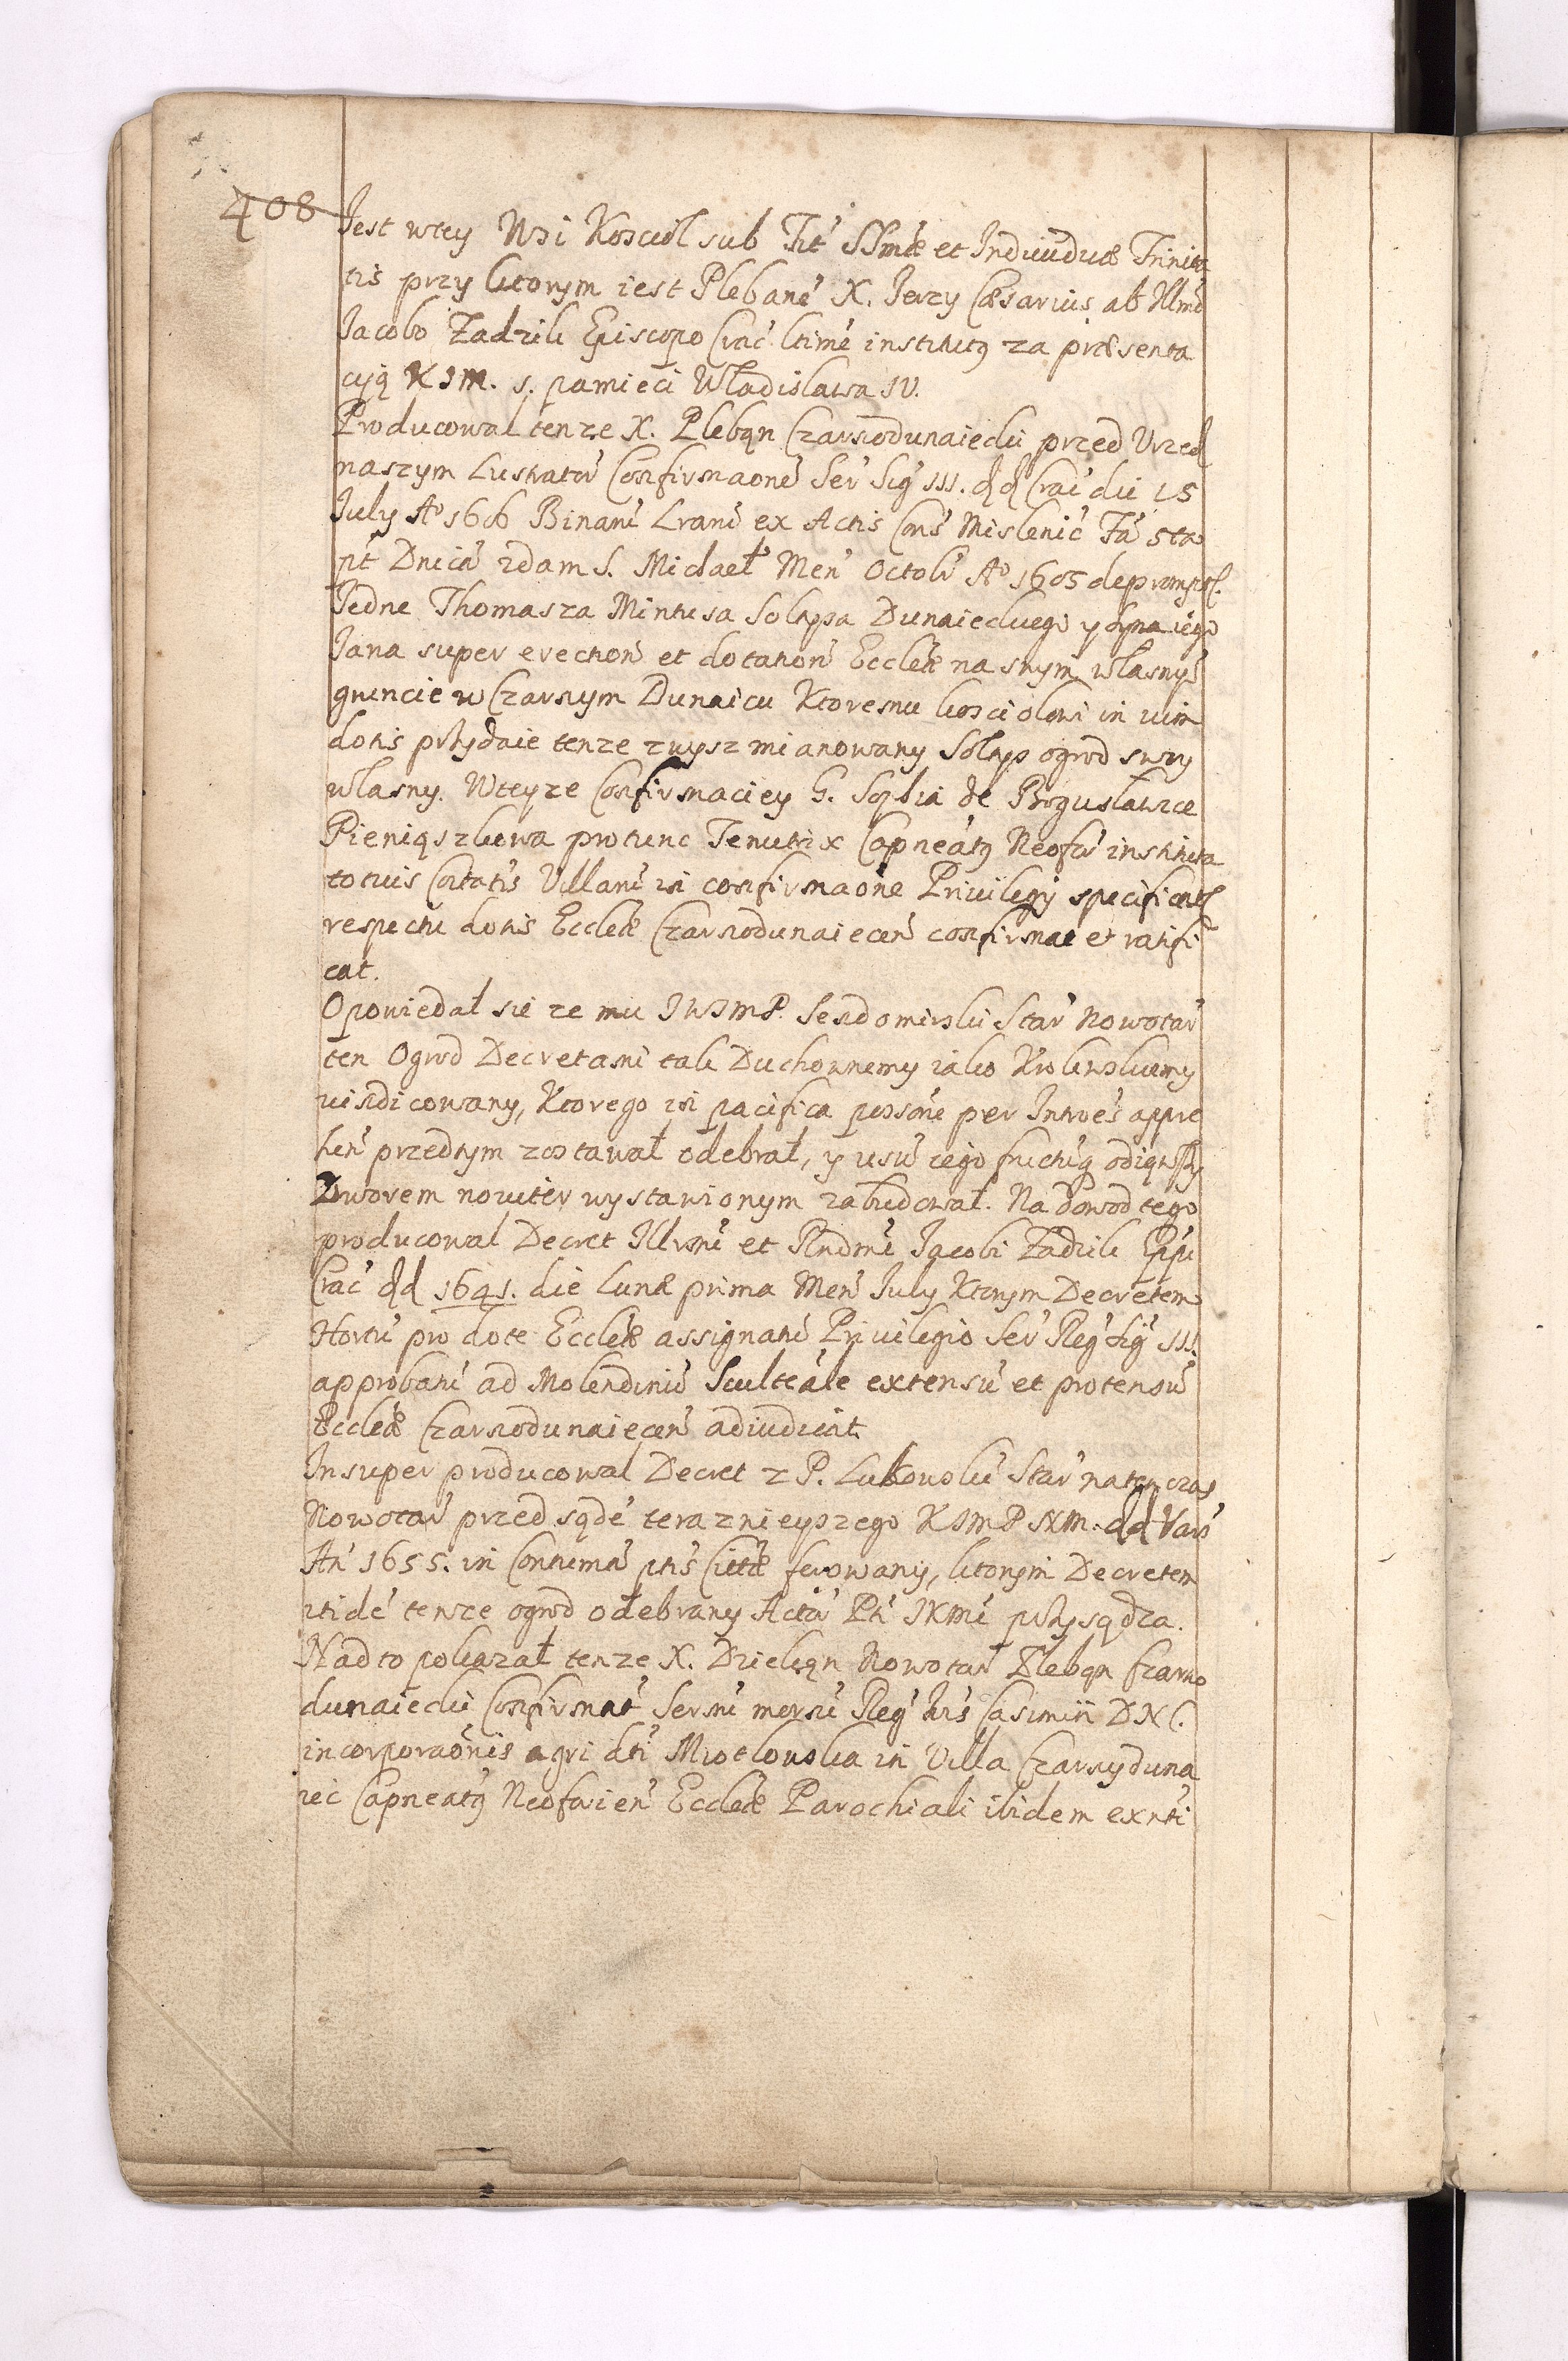 408
Jest wtey Wsi Kosciol sub Tit' SSmæ et Individuæ Trinita
tis przy ktorym iest Plebane' X. Jerzy Cæsarius ab Illmo
Jacobo Zadzik Episcopo Crac' ltime institutg za præsenta
cyą KJM. s. pamieci Wladislawa IV.
Producowal tenze X. Plebąn Czarnodunaiecki przed Vrzed
naszym Lustrator' Confirmaone' Ser' Sig' III. dd Crac' die 15
July A° 1606 Binari' Lrani' ex Actis Cons' Mislenic' Fa' 5ta
pt' Dnica' 2dam S. Michael' Men' Octobr' A° 1605 deprompt.
Jedne Thomasza Mintusa Soltysa Dunaieckiego y syna iego
Jana super erection' et dotation' Eccleæ na swym wlasny'
gruncie w Czarnym Dunaicu Ktoremu kosciolowi in vim
dotis przydaie tenze zwysz mianowany Soltys ogrod swoy
wlasny. Wteyze Confirmaciey G. Sophia de Boguslawice
Pieniąszkowa protunc Tenutrix Capneatg Neofor' instituta
totius Cottatis Villani' in confirmaone Privilegy specificat
respectu dotis Eccleæ Czarnodunaiecen' confirmat et ratifi
cat.
Opowiedał sie ze mu JWJMP. Sendomirski Star' Nowotar'
ten Ogrod Decretami tak Duchownemy iako Krolewskiemy
vindicowany, Ktorego in pacifica possone per Intro'es' appre
hen' przedtym zostawał odebrał, y usu' iego fructuq odiąwszy
Dworem noviter wystawionym zabudował. Na dowod tego
producowal Decret Illrmi et Rndmi Jacobi Zadzik Eppi
Crac' dd 1641. die Lunæ prima Men' July Ktorym Decretem
Hortu' pro dote Eccleæ assignatu' Privilegio Ser' Reg' Sig' III.
approbatu' ad Molendinu' Sculteale extensu' et protensu'
Eccleæ Czarnodunaiecen' adiudicat.
Insuper producowal Decret z P. Lubowski' Star' natenczas
Nowotar' przed sąde' teraznieyszego KJMP NM. dd Vars'
An' 1655. in Contuma' ptis Citæ ferowany, ktorym Decretem
itide' tenze ogrod odebrany Actor' Pti' JKMci przysądza.
Nadto pokazał tenze X. Dziekąn Nowotar' Plebąn Czarno
dunaiecki Confirmat' Sermi mersi' Reg' Jois Casimiri D N C.
incorporaonis agri dti' Miotlowska in Villa Czarny duna
iec Capneatg Neoforien' Eccleæ Parochiali ibidem exnti